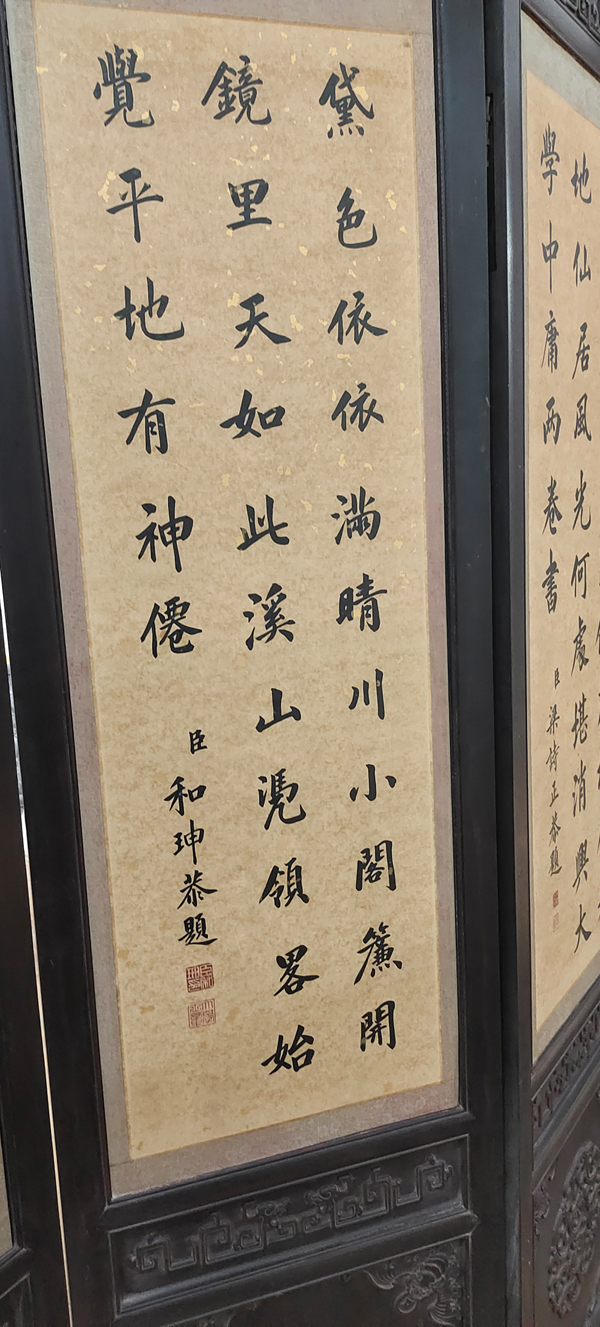 地仙居風光何處堪消興大
學中庸兩卷書
臣梁詩正恭題
黛色依依滿晴川小閣簾開
鏡里天如此溪山凴領畧始
覺平地有神僊
臣和珅恭題